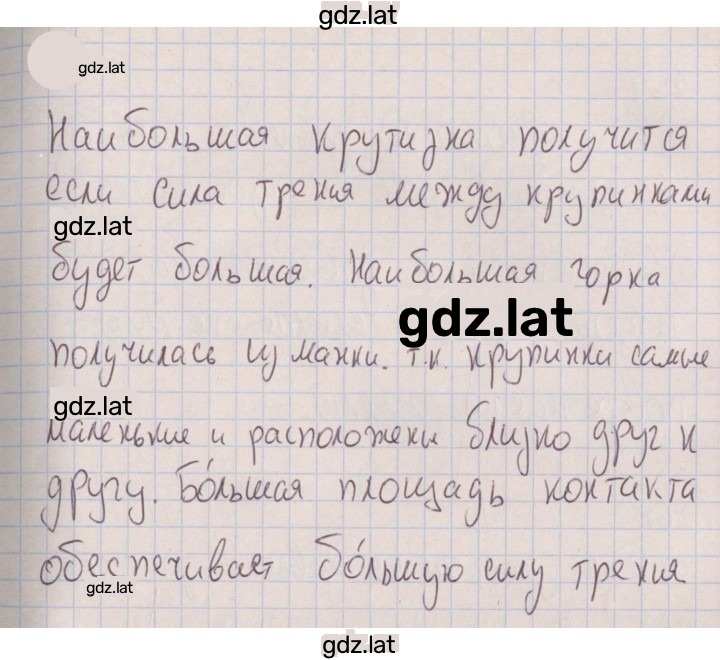 gdz.lat
gdz.lat
Наибольшая крутизна получится
если сила трения между крупинками
gdz.lat
будет большая. Наибольшая горка
gdz.lat
получилась из манки. т.к. крупинки самые
gdz.lat
маленькие и расположены близко друг к
другу. Бо́льшая площадь контакта
обеспечивает бо́льшую силу трения
gdz.lat
gdz.lat